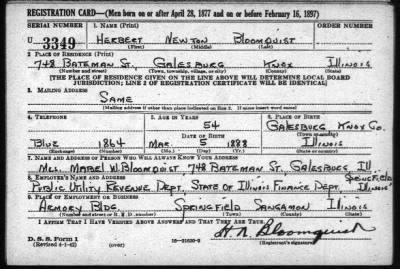 REGISTRATION CARD—(Men born on or after April 28, 1877 and on or before February 16, 1897)
SERIAL NUMBER 1. NAME (Print) ORDER NUMBER
U 3349 HERBERT NEWTON BLOOMQUIST
(First) (Middle) (Last)
2. PLACE OF RESIDENCE (Print)
748 BATEMAN ST. GALESBURG KNOX ILLINOIS
(Number and street) (Town, township, village, or city) (County) (State)
[THE PLACE OF RESIDENCE GIVEN ON THE LINE ABOVE WILL DETERMINE LOCAL BOARD
JURISDICTION; LINE 2 OF REGISTRATION CERTIFICATE WILL BE IDENTICAL]
3. MAILING ADDRESS
SAME
[Mailing address if other than place indicated on line 2. If same insert word same]
4. TELEPHONE 5. AGE IN YEARS 6. PLACE OF BIRTH
54 GALESBURG KNOX CO.
DATE OF BIRTH (Town or county)
BLUE 1864 MAR. 5 1888 ILLINOIS
(Exchange) (Number) (Mo.) (Day) (Yr.) (State or country)
7. NAME AND ADDRESS OF PERSON WHO WILL ALWAYS KNOW YOUR ADDRESS
MRS. MABEL W. BLOOMQUIST 748 BATEMAN ST. GALESBURG ILL
8. EMPLOYER'S NAME AND ADDRESS SPRINGFIELD
PUBLIC UTILITY REVENUE DEPT. STATE OF ILLINOIS FINANCE DEPT. ILLINOIS
9. PLACE OF EMPLOYMENT OR BUSINESS
ARMORY BLDG. SPRINGFIELD SANGAMON ILLINOIS
(Number and street or R. F. D. number) (Town) (County) (State)
I AFFIRM THAT I HAVE VERIFIED ABOVE ANSWERS AND THAT THEY ARE TRUE.
H. N. Bloomquist
D. S. S. Form 1
(Revised 4-1-42) (over) (Registrant's signature)